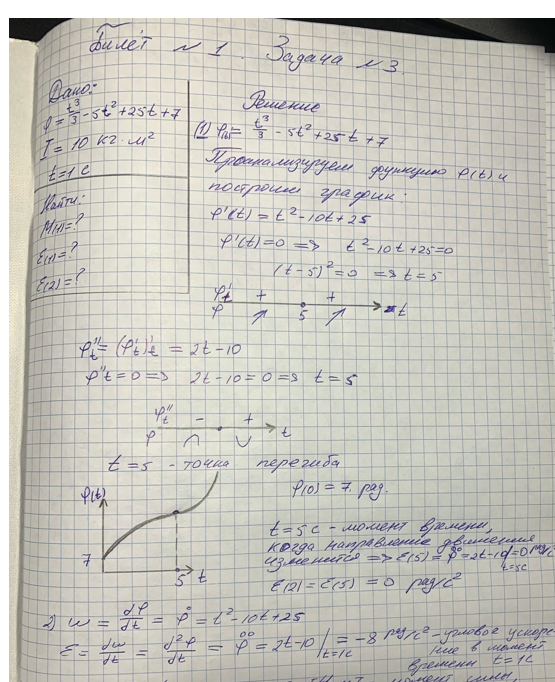 Билет №1. Задача №3.
Дано:
φ = t³/3 - 5t² + 25t + 7
I = 10 кг·м²
t = 1 с
Найти:
M(1) = ?
ε(1) = ?
ε(2) = ?
Решение
(1) φ(t) = t³/3 - 5t² + 25t + 7
Проанализируем функцию φ(t) и
построим график.
φ'(t) = t² - 10t + 25
φ'(t) = 0 => t² - 10t + 25 = 0
(t-5)² = 0 => t = 5
φ't + + t
φ ↗ 5 ↗
φ''t = (φ't)'t = 2t - 10
φ''t = 0 => 2t - 10 = 0 => t = 5
φ''t - + t
φ ∩ ∪
t = 5 - точка перегиба
φ(t)
φ(0) = 7 рад.
7
5 t
t = 5 с - момент времени,
когда направление движения
изменится => ε(5) = φ̈ = 2t-10|t=5с = 0 рад/с²
ε(2) = ε(5) = 0 рад/с²
2) ω = dφ/dt = φ̇ = t² - 10t + 25
ε = dω/dt = d²φ/dt² = φ̈ = 2t-10|t=1с = -8 рад/с² - угловое ускоре-
ние в момент
времени t = 1с